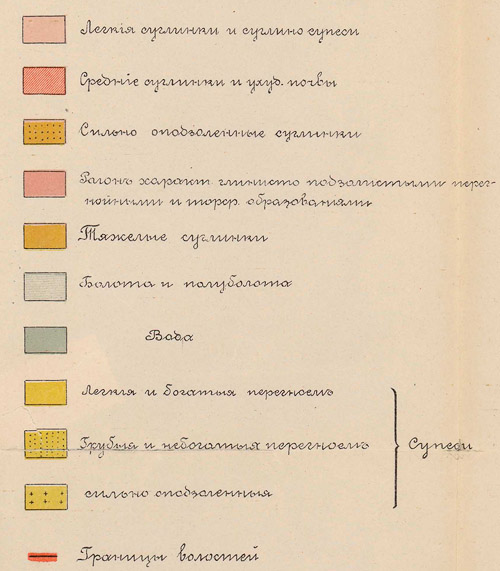 Легкія суглинки и суглино супеси
Средніе суглинки и ухуд. почвы
Сильно оподзоленные суглинки
Рагонъ характ глинисто подзолистыми перег-
нойными и торф. образованіями
Тяжелые суглинки
Болота и полуболота
Вода
Легкія и богатыя перегноемъ
Грубыя и небогатыя перегноемъ
Супеси
сильно оподзоленныя
Границы волостей